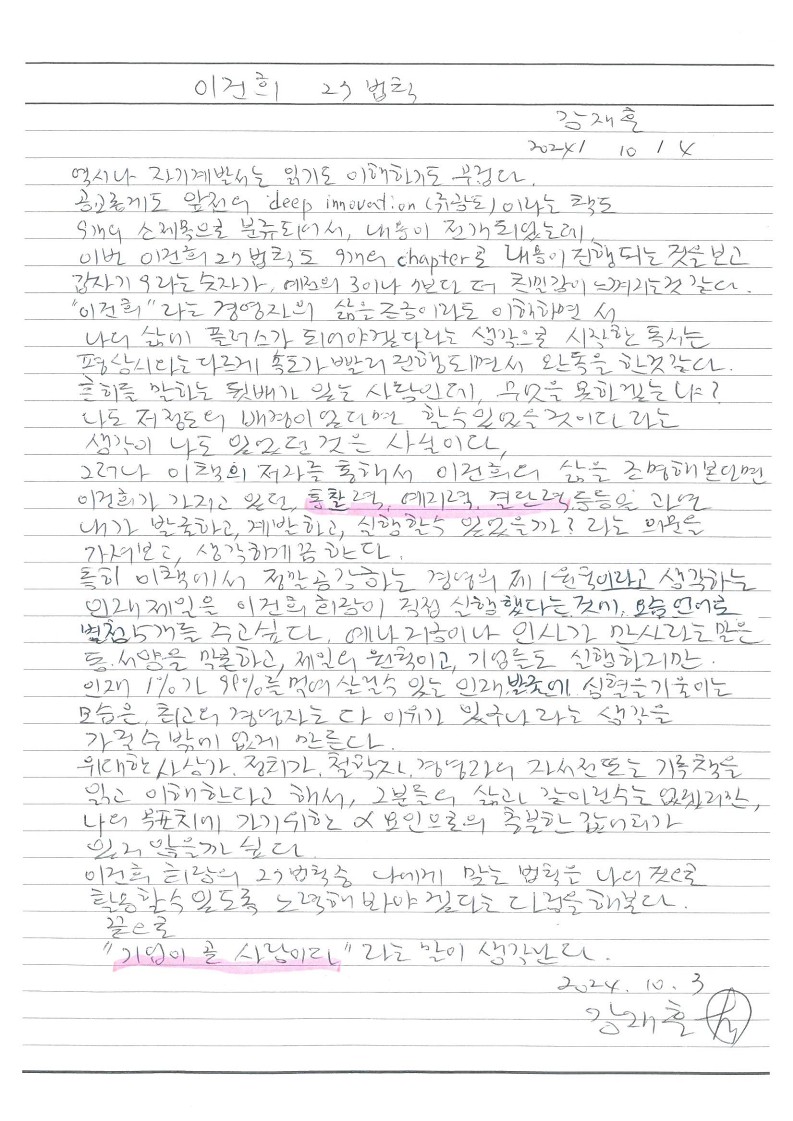 이건희 27법칙
강재훈
2024 / 10 / 4
역시나 자기계발서는 읽기도 이해하기도 무겁다.
공교롭게도 앞전의 deep innovation (최광도) 이라는 책도
9개의 소제목으로 분류되어서, 내용이 전개되었는데,
이번 이건희 27법칙도 9개의 chapter로 내용이 진행되는 것을 보고
갑자기 9라는 숫자가, 예전의 3이나 7보다 더 친밀감이 느껴지는것 같다.
"이건희" 라는 경영자의 삶을 조금이라도 이해하면서
나의 삶에 플러스가 되어야겠다라는 생각으로 시작한 독서는
평상시와는 다르게 속도가 빨리 진행되면서 완독을 한것같다.
흔히들 말하는 뒷배가 있는 사람인데, 무엇을 못하겠는냐?
나도 저정도의 배경이 있다면 할수있었을것이다 라는
생각이 나도 있었던 것은 사실이다,
그러나 이책의 저자를 통해서 이건희의 삶을 조명해본다면
이건희가 가지고 있던, 통찰력, 예지력, 결단력, 등등을 과연
내가 발굴하고, 계발하고, 실행할수 있었을까? 라는 의문을
가져보고, 생각하게끔 한다.
특히 이책에서 정말공감하는 경영의 제1원칙이라고 생각하는
인재제일을 이건희 회장이 직접 실행했다는것에, 요즘언어로
별점5개를 주고싶다. 예나 지금이나 인사가 만사라는말은
동.서양을 막론하고, 제일의 원칙이고, 기업들도 실행하지만.
인재 1%가 99%를 먹여 살릴수 있는 인재발굴에 심혈을기울이는
모습은, 최고의 경영자는 다 이유가 있구나 라는 생각을
가질수 밖에 없게 만든다.
위대한사상가, 정치가, 철학자, 경영가의 자서전또는 기록책을
읽고 이해한다고 해서, 그분들의 삶과 같아질수는 없겠지만,
나의 목표치에 가기위한 α 요인으로의 충분한 값어치가
있지 않을까 싶다.
이건희 회장의 27법칙중 나에게 맞는 법칙은 나의 것으로
활용할수 있도록 노력해 봐야 겠다는 다짐을해본다.
끝으로
"기업이 곧 사람이다" 라는 말이 생각난다.
2024. 10. 3
강재훈